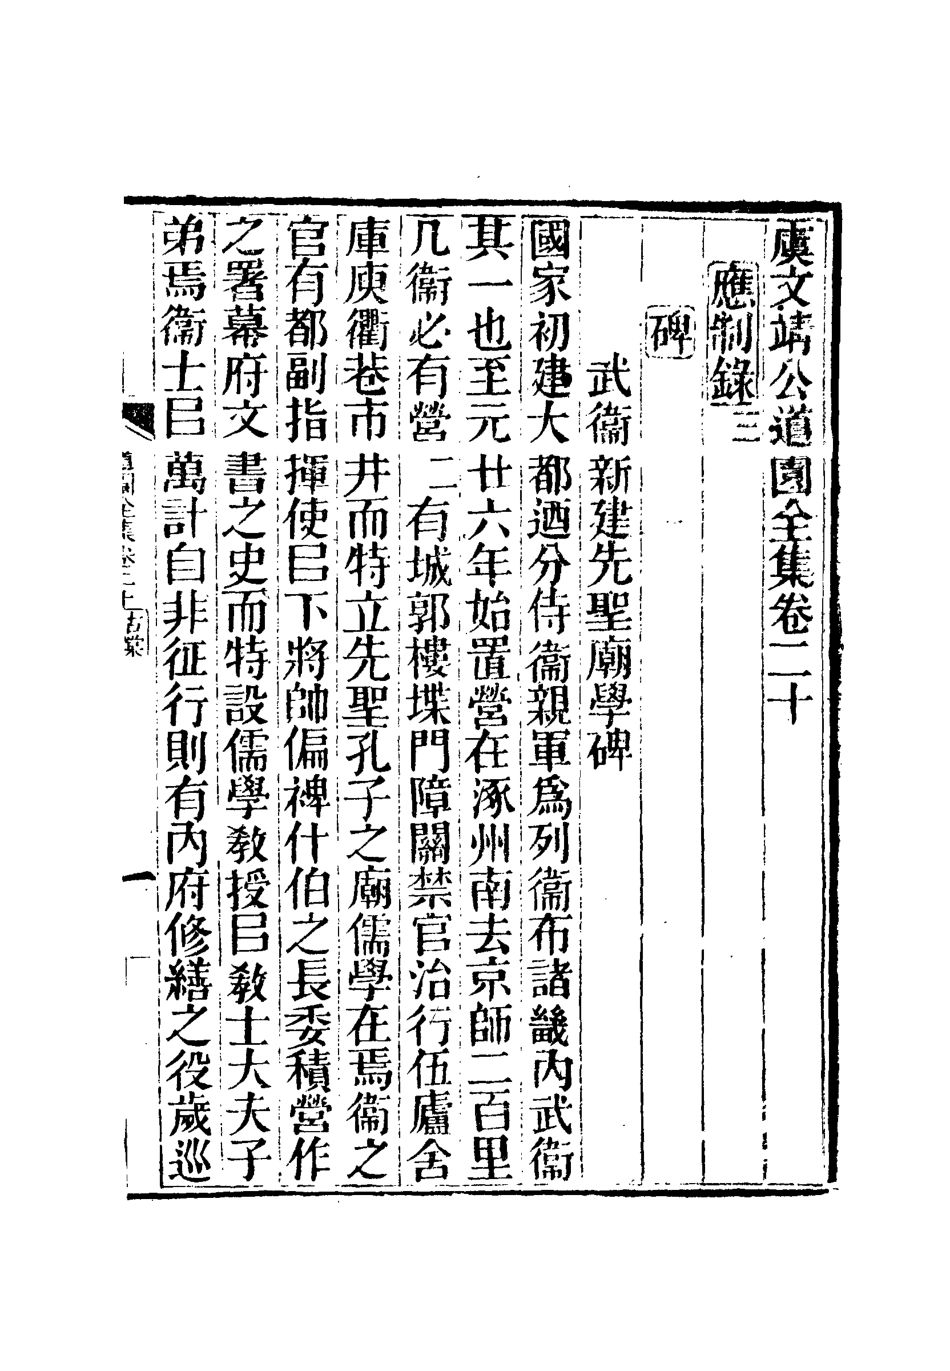 虞文靖公道園全集卷二十
應制錄三
碑
武衞新建先聖廟學碑
國家初建大都迺分侍衞親軍爲列衞布諸畿內武衞
其一也至元廿六年始置營在涿州南去京師二百里
凡衞必有營二有城郭樓堞門障關禁官治行伍廬舍
庫庾衢巷市井而特立先聖孔子之廟儒學在焉衞之
官有都副指揮使㠯下將帥偏裨什伯之長委積營作
之署幕府文書之史而特設儒學教授㠯教士大夫子
弟焉衞士㠯萬計自非征行則有內府修繕之役歲巡
道園全集卷二十 古棠 一